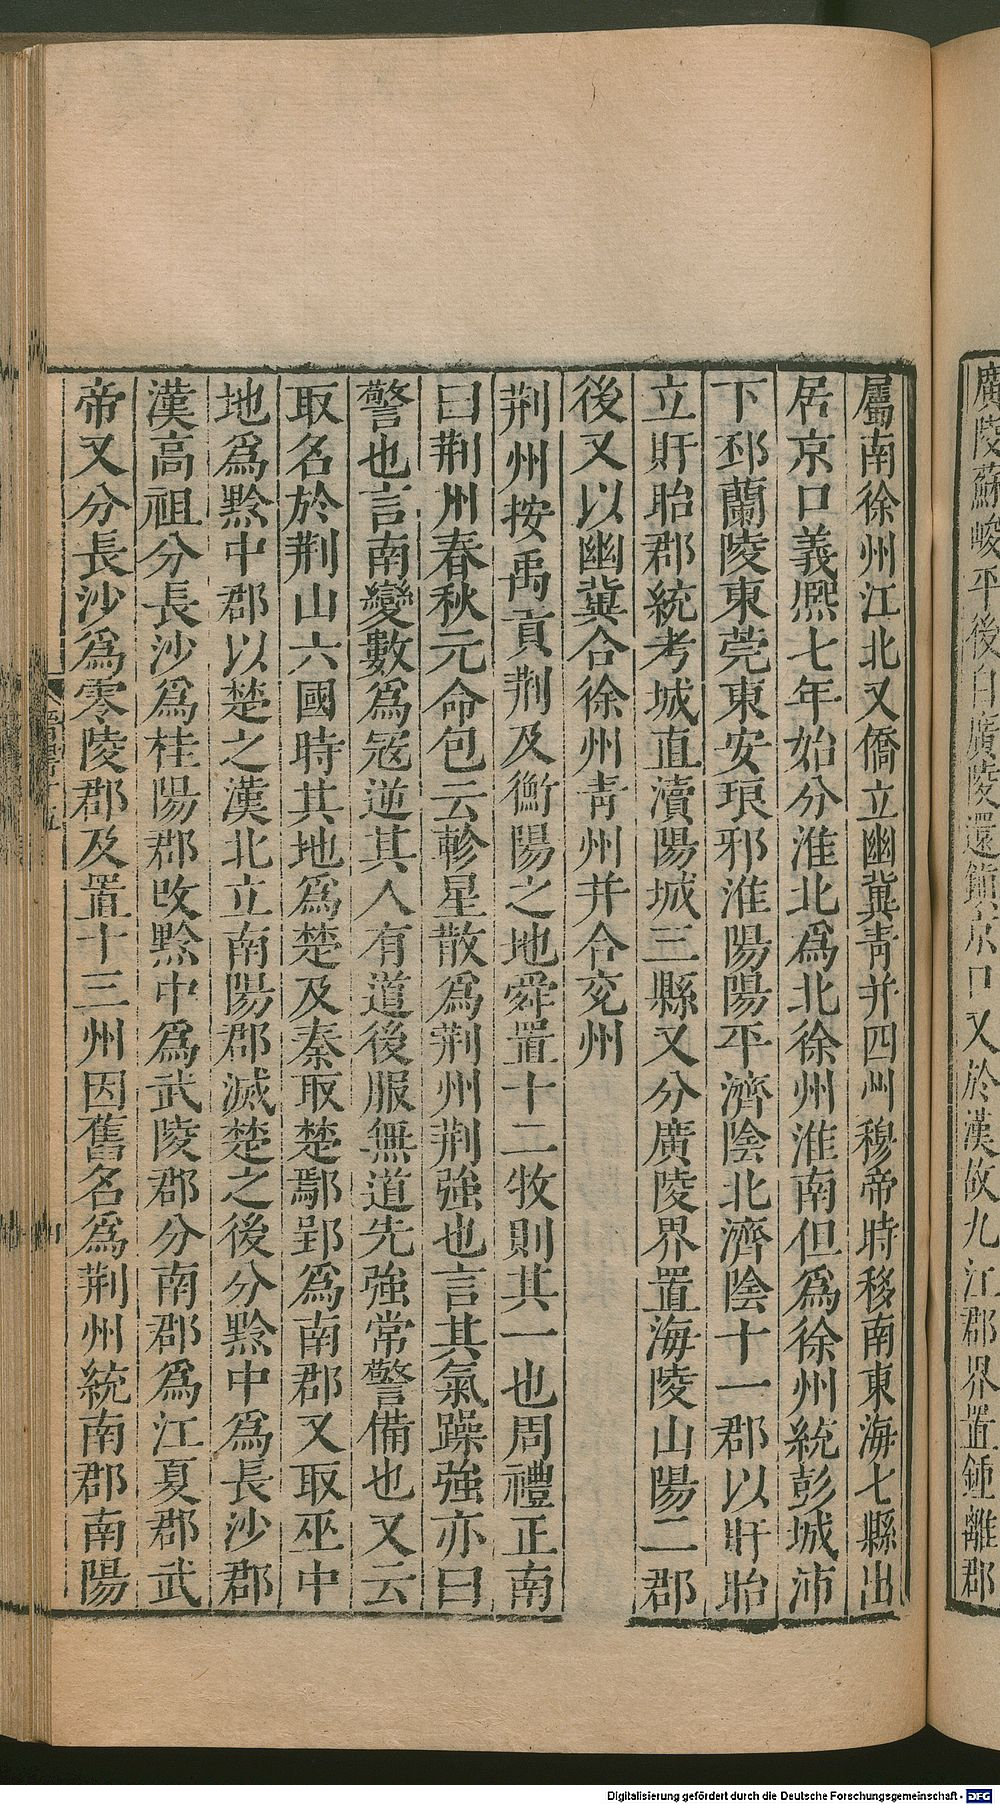 廣陵蘇峻平後自廣陵還鎮京口又於漢故九江郡界置鍾離郡
屬南徐州江北又僑立幽冀青并四州穆帝時移南東海七縣出
居京口義熙七年始分淮北爲北徐州淮南但爲徐州統彭城沛
下邳蘭陵東莞東安琅邪淮陽陽平濟陰北濟陰十一郡以盱眙
立盱眙郡統考城直瀆陽城三縣又分廣陵界置海陵山陽二郡
後又以幽冀合徐州青州并合兖州
荆州按禹貢荆及衡陽之地舜置十二牧則其一也周禮正南
曰荆州春秋元命包云軫星散爲荆州荆強也言其氣躁強亦曰
警也言南蠻數爲宼逆其人有道後服無道先強常警備也又云
取名於荆山六國時其地爲楚及秦取楚鄢郢爲南郡又取巫中
地爲黔中郡以楚之漢北立南陽郡滅楚之後分黔中爲長沙郡
漢高祖分長沙爲桂陽郡改黔中爲武陵郡分南郡爲江夏郡武
帝又分長沙爲零陵郡及置十三州因舊名爲荆州統南郡南陽
Digitalisierung gefördert durch die Deutsche Forschungsgemeinschaft - DFG